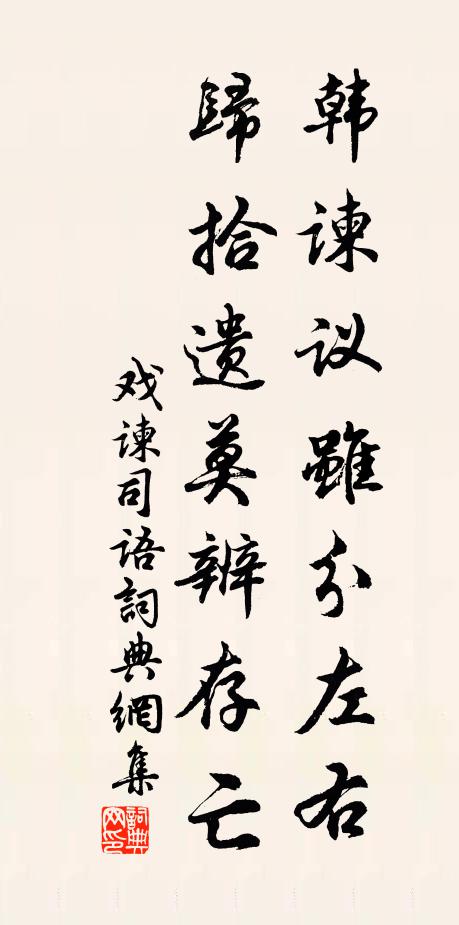 韩谏议雖分左右
歸拾遗莫辨存亡
戏谏司语詞典網集
詞典网印